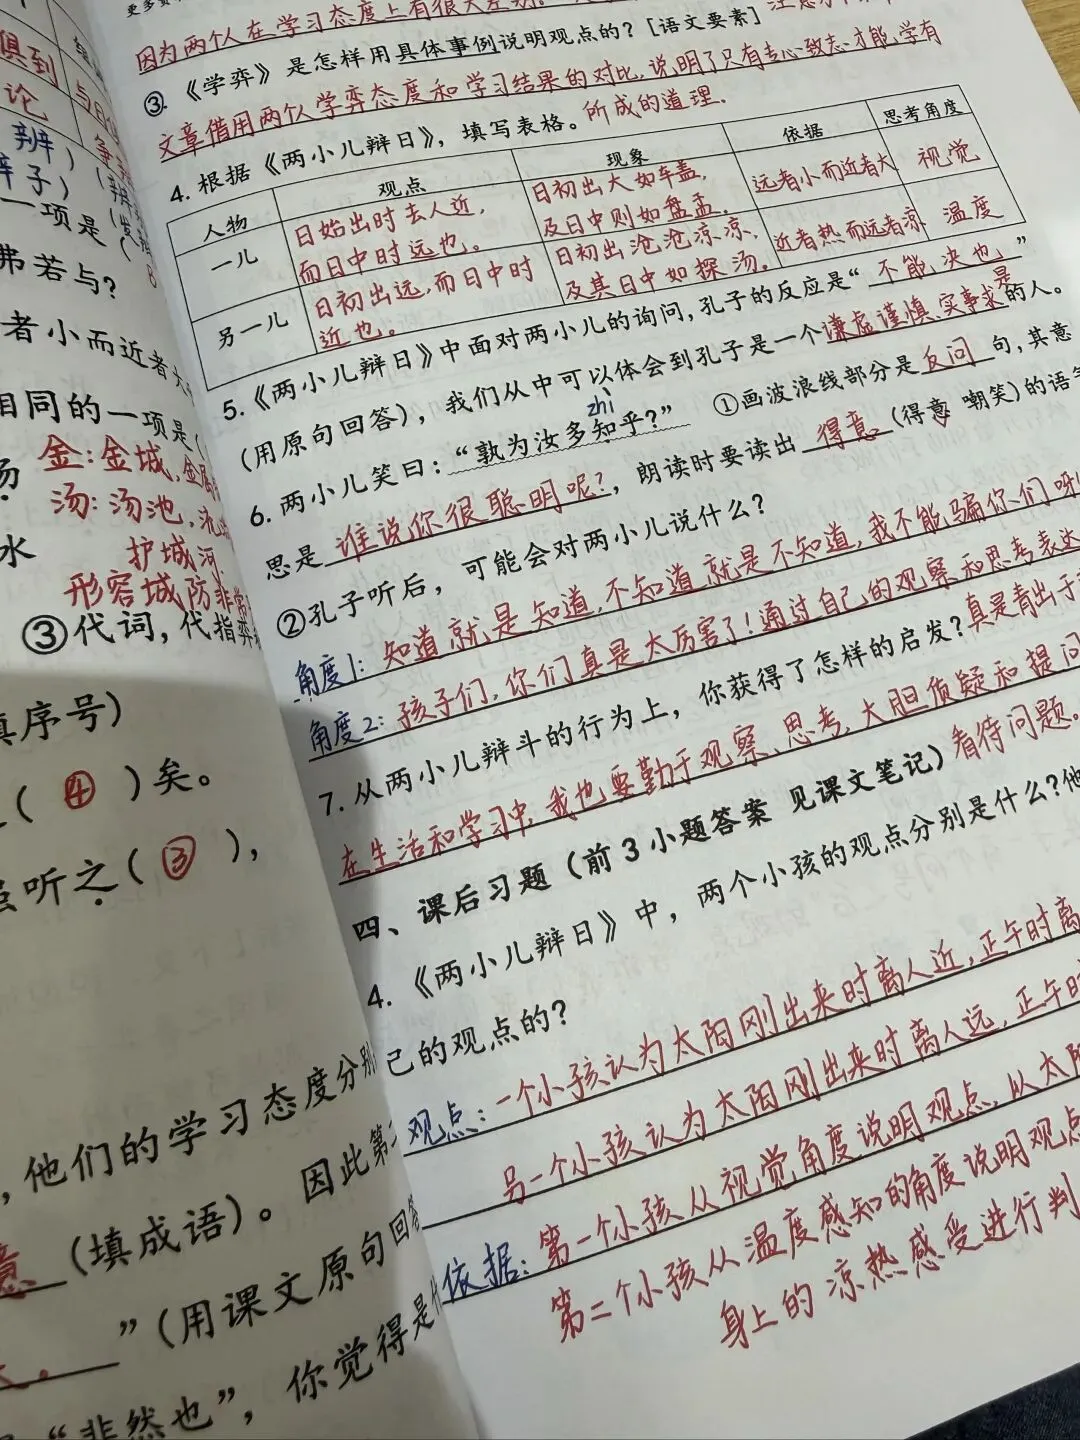 俱到
论
辨）
辛子）
一项是
弗若与？
者小而近者大
相同的一项是（
汤 金：金城，金属
汤：汤池，
水 护城河
形容城防非常
③代词，代指弈
真序号）
（ ④ ）矣。
听之（ ③ ），
，他们的学习态度分别
意 （填成语）。因此第二
”（用课文原句回答
“非然也”，你觉得是什
因为两个人在学习态度上有很大差别。
③.《学弈》是怎样用具体事例说明观点的？［语文要素］
文章借用两个人学弈态度和学习结果的对比，说明了只有专心致志才能学有
所成的道理.
4. 根据《两小儿辩日》，填写表格。
人物 观点 现象 依据 思考角度
一儿 日始出时去人近，而日中时远也。 日初出大如车盖，及日中则如盘盂。 远者小而近者大 视觉
另一儿 日初出远，而日中时近也。 日初出沧沧凉凉，及其日中如探汤。 近者热而远者凉 温度
5.《两小儿辩日》中面对两小儿的询问，孔子的反应是“ 不能决也 ”
（用原句回答），我们从中可以体会到孔子是一个谦虚谨慎、实事求是的人。
zhì
6. 两小儿笑曰：“孰为汝多知乎？” ①画波浪线部分是 反问 句，其意
思是 谁说你很聪明呢？，朗读时要读出 得意。（得意 嘲笑）的语气
②孔子听后，可能会对两小儿说什么？
角度1：知道就是知道，不知道就是不知道，我不能骗你们呀！
角度2：孩子们，你们真是太厉害了！通过自己的观察和思考表达
真是青出于
7. 从两小儿辩斗的行为上，你获得了怎样的启发？
在生活和学习中，我也要勤于观察、思考，大胆质疑和提问
看待问题。
四、课后习题（前 3 小题答案 见课文笔记）
4.《两小儿辩日》中，两个小孩的观点分别是什么？他
己的观点的？
观点：一个小孩认为太阳刚出来时离人近，正午时离
另一个小孩认为太阳刚出来时离人远，正午时
依据：第一个小孩从视觉角度说明观点，从太阳
第二个小孩从温度感知的角度说明观点
身上的凉热感受进行判